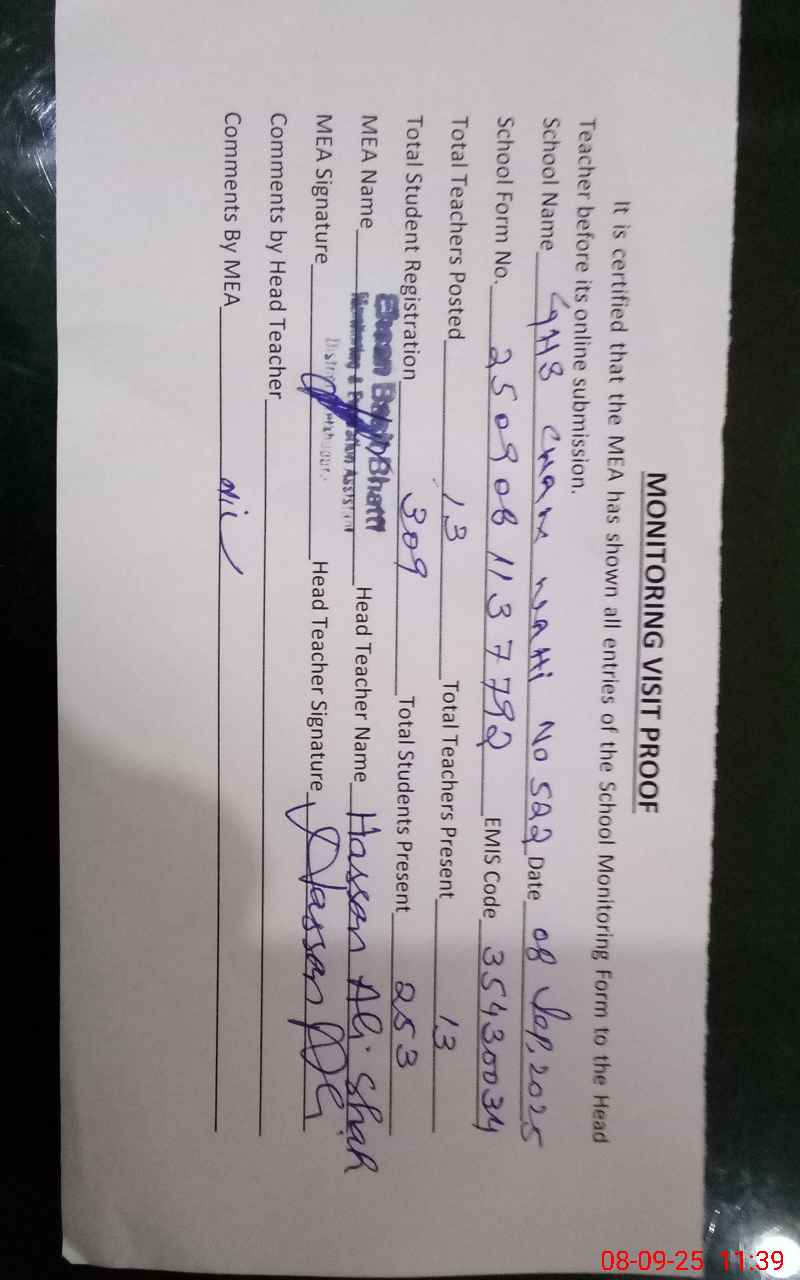 MONITORING VISIT PROOF
It is certified that the MEA has shown all entries of the School Monitoring Form to the Head
Teacher before its online submission.
School Name GHS CHAK WATTI No 522 Date 08 Sep, 2025
School Form No. 250908113 7792 EMIS Code 35430034
Total Teachers Posted 13 Total Teachers Present 13
Total Student Registration 309 Total Students Present 253
MEA Name Bhatti Head Teacher Name Hassan Ali Shah
Monitoring & Evaluation Assistant
MEA Signature Head Teacher Signature Hassan Ali
Comments by Head Teacher
Comments By MEA Nil
08-09-25 11:39